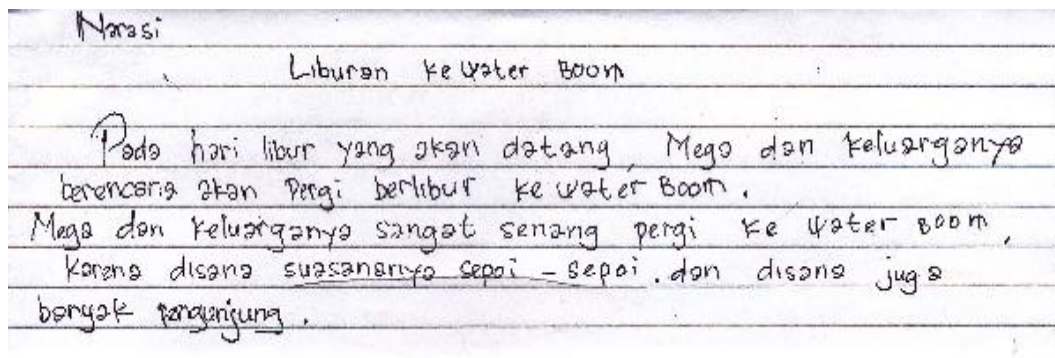 Narasi
Liburan ke Water Boom
Pada hari libur yang akan datang Mega dan keluarganya
berencana akan Pergi berlibur ke water Boom.
Mega dan keluarganya sangat senang pergi ke Water Boom,
Karena disana suasananya sepoi - sepoi. dan disana juga
banyak pengunjung.